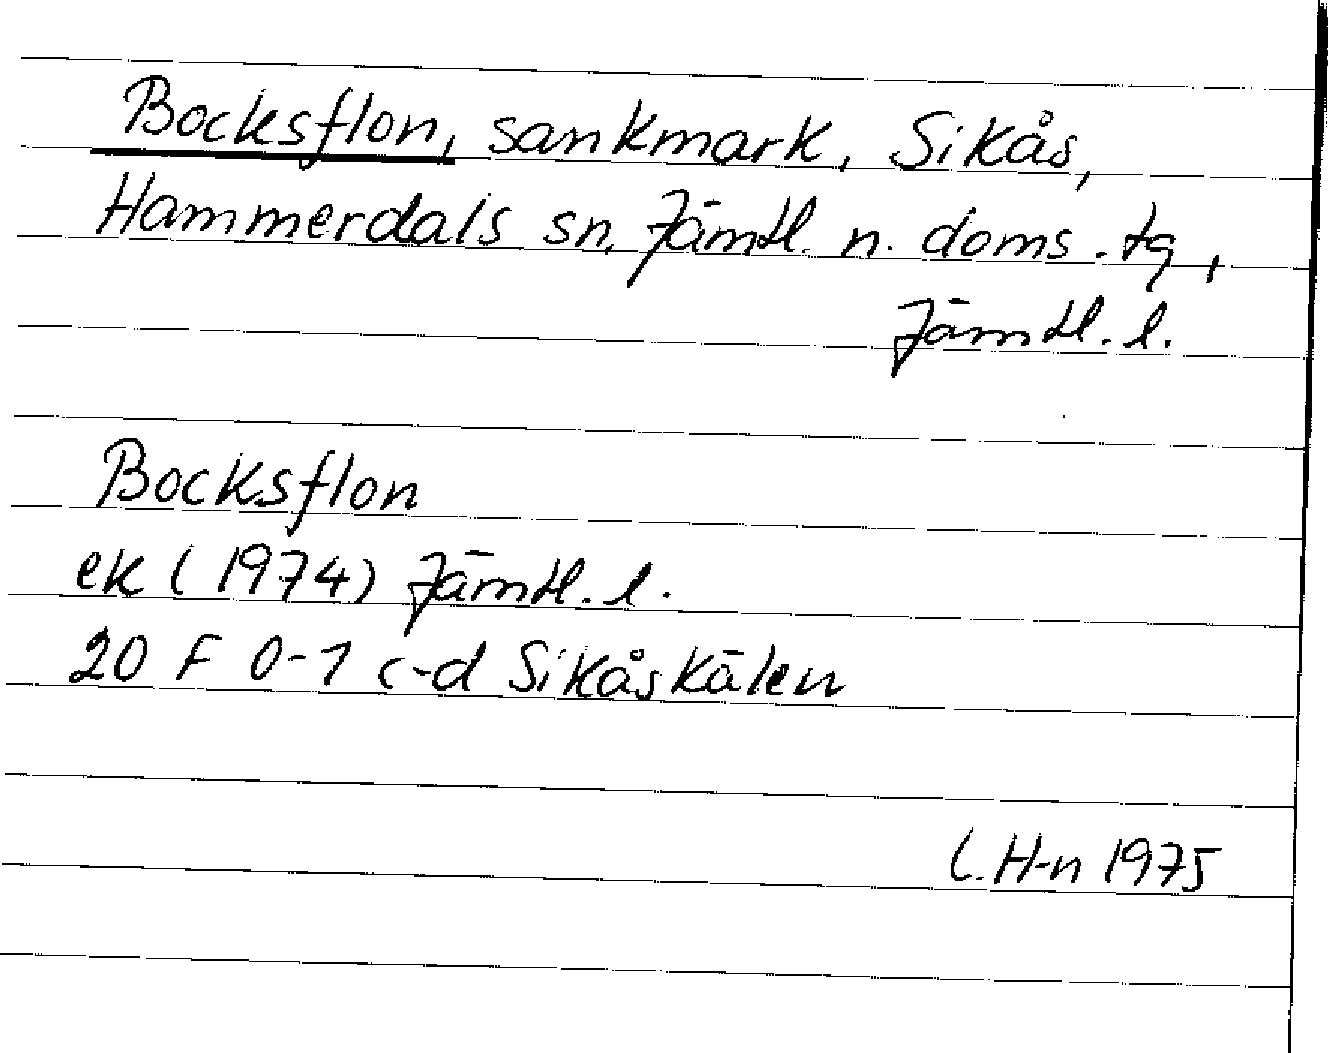 Bocksflon, sankmark, Sikås,
Hammerdals sn, Jämtl. n. doms.-tg,
Jämtl. l.
Bocksflon
ek (1974) Jämtl. l.
20 F 0-1 c-d Sikåskälen
L. H-n 1975